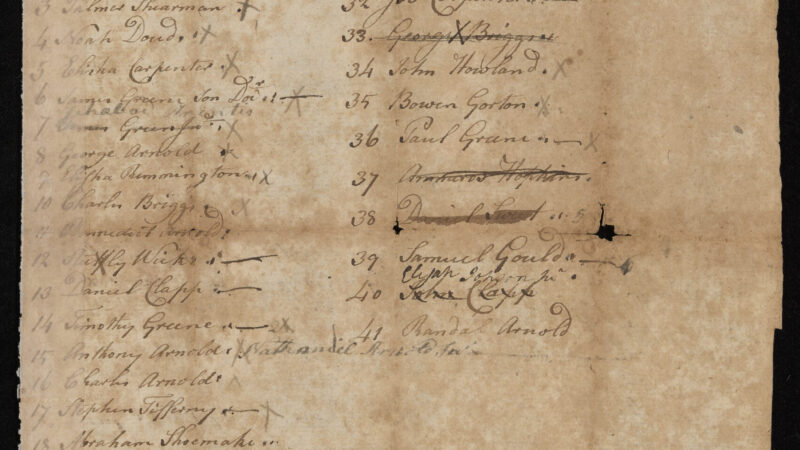 3 Palmer Shearman
4 Noah Doud
5 Elisha Carpenter
6 James Greene Son Do.r
7 Greene
8 George Arnold
9 Elisha Remmington
10 Charles Briggs
11 Bennedict Arnold
12 Wicks
13 Daniel Clapp
14 Timothy Greene
15 Anthony Arnold Nathaniel Arnold
16 Charles Arnold
17 Stephen Tifferny
18 Abraham Shoemake
32 Job
33. George Briggs
34 John Howland
35 Bowen Gorton
36 Paul Greene
37 Hopkins
38 Daniel Sweet
39 Samuel Gould
Elijah Johnson
40 John Clapp
41 Randal Arnold